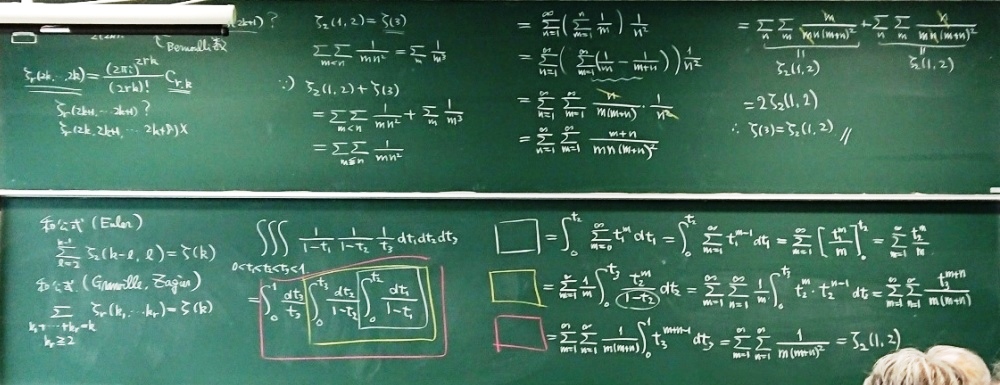 (2k+1)?
Bernoulli数
ζ_r(2k,…2k) = (2πi)^{2rk} / (2rk)! C_{r,k}
ζ_r(2k+1,…2k+1)?
ζ_2(1,2) = ζ(3)
ΣΣ_{m<n} 1/(mn²) = Σ_m 1/m³
∵) ζ_2(1,2) + ζ(3)
= ΣΣ_{m<n} 1/(mn²) + Σ_m 1/m³
= ΣΣ_{m≦n} 1/(mn²)
= Σ_{n=1}^∞ (Σ_{m=1}^n 1/m) 1/n²
= Σ_{n=1}^∞ (Σ_{m=1}^∞ (1/m - 1/(m+n))) 1/n²
= Σ_{n=1}^∞ Σ_{m=1}^∞ n/(m(m+n)) · 1/n²
= Σ_{n=1}^∞ Σ_{m=1}^∞ (m+n)/(mn(m+n)²)
= Σ_n Σ_m m/(mn(m+n)²) + Σ_n Σ_m n/(mn(m+n)²)
ζ_2(1,2) ζ_2(1,2)
= 2ζ_2(1,2)
∴ ζ(3) = ζ_2(1,2) //
和公式 (Euler)
Σ_{l=2}^{k-1} ζ_2(k-l, l) = ζ(k)
和公式 (Granville, Zagier)
Σ_{k_1+…+k_r=k, k_r≧2} ζ_r(k_1,…k_r) = ζ(k)
∫∫∫_{0<t_1<t_2<t_3<1} 1/(1-t_1) 1/(1-t_2) 1/t_3 dt_1dt_2dt_3
= ∫_0^1 dt_3/t_3 ∫_0^{t_3} dt_2/(1-t_2) ∫_0^{t_2} dt_1/(1-t_1)
= ∫_0^{t_2} Σ_{m=0}^∞ t_1^m dt_1 = ∫_0^{t_2} Σ_{m=1}^∞ t_1^{m-1} dt_1 = Σ_{m=1}^∞ [t_1^m/m]_0^{t_2} = Σ_{m=1}^∞ t_2^m/m
= Σ_{m=1}^∞ 1/m ∫_0^{t_3} t_2^m/(1-t_2) dt_2 = Σ_{m=1}^∞ Σ_{n=1}^∞ 1/m ∫_0^{t_3} t_2^m · t_2^{n-1} dt = Σ_{m=1}^∞ Σ_{n=1}^∞ t_3^{m+n}/(m(m+n))
= Σ_{m=1}^∞ Σ_{n=1}^∞ 1/(m(m+n)) ∫_0^1 t_3^{m+n-1} dt_3 = Σ_{m=1}^∞ Σ_{n=1}^∞ 1/(m(m+n)²) = ζ_2(1,2)